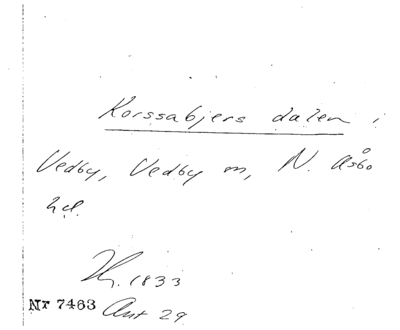 Korssabjers dalen i
Vedby, Vedby m, N. Åsbo
hd.
Hg. 1833
Nr 7463 Ant 29